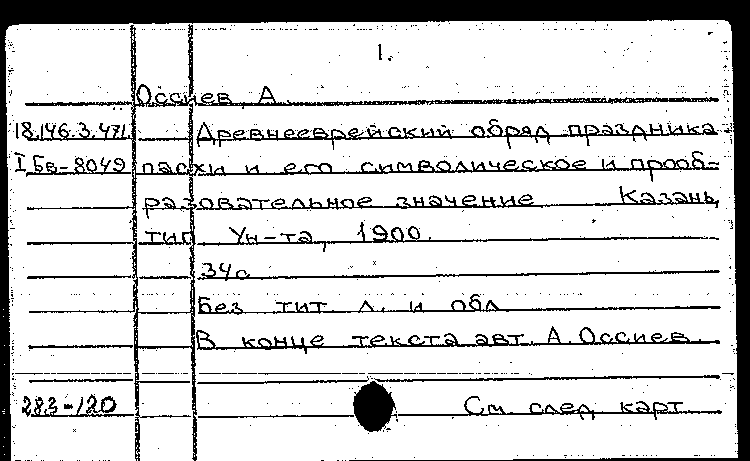 1.
Оссиев, А.
18.146.3.471 Древнееврейский обряд праздника
I Бв-8049 пасхи и его символическое и прооб-
разовательное значение Казань,
тип Ун-та, 1900.
34с
Без тит л. и обл
В конце текста авт. А. Оссиев.
283-120 См. след карт